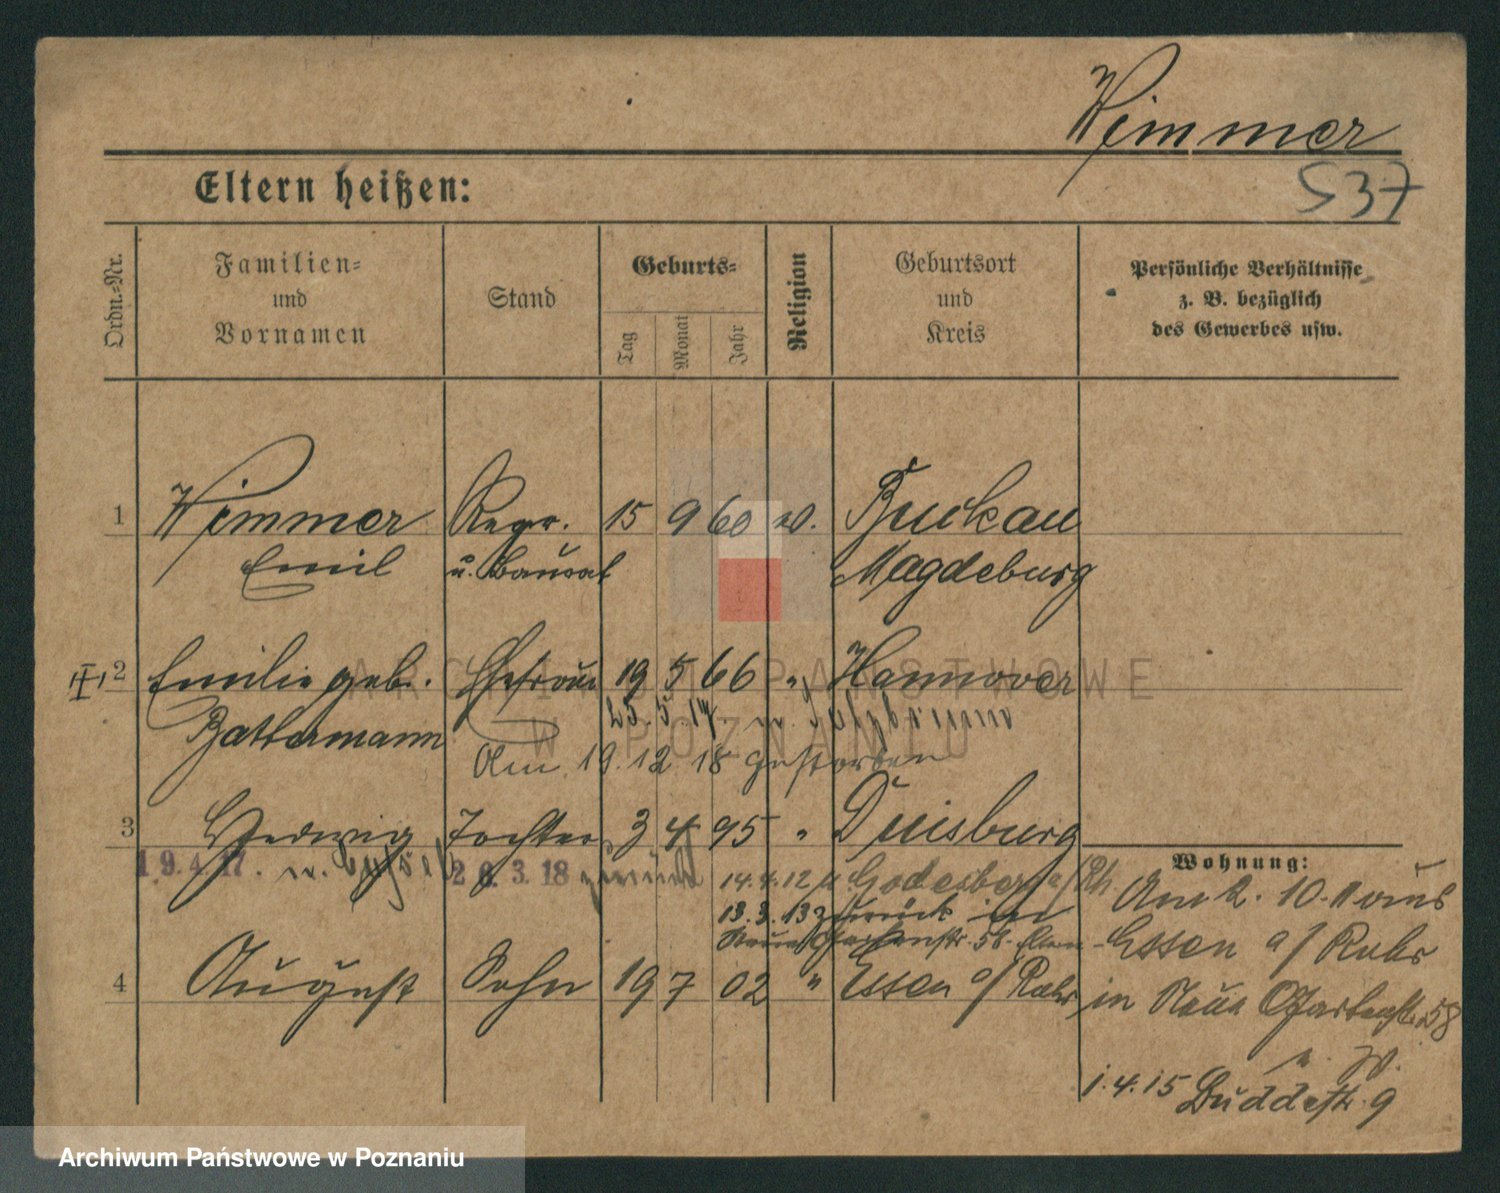 Wimmer
537
Eltern heißen:
Ordn.-Nr.
Familien-
und
Vornamen
Stand
Geburts-
Tag
Monat
Jahr
Religion
Geburtsort
und
Kreis
Persönliche Verhältnisse
z. B. bezüglich
des Gewerbes usw.
1 Wimmer Regr. 15 9 60 ev. Buckau
Emil u. Baurat Magdeburg
2 Emilie geb. Ehefrau 19 5 66 " Hannover
Battermann 25. 5. 14. n.
Am 19. 12. 18 gestorben
3 Hedwig Tochter 3 4 95 " Duisburg
Wohnung:
19.4.17. n. 26.3.18 zurück 14.4.12 n Godesberg a/Rh
13.3.13 zurück in
Neue Gartenstr. 58.
4 August Sohn 19 7 02 " Essen a/Ruhr
Am 2. 10. 11 aus
Essen a/Ruhr
in Neue Gartenstr. 58
n. W.
1.4.15 Buddestr. 9
ARCHIWUM PAŃSTWOWE
W POZNANIU
Archiwum Państwowe w Poznaniu